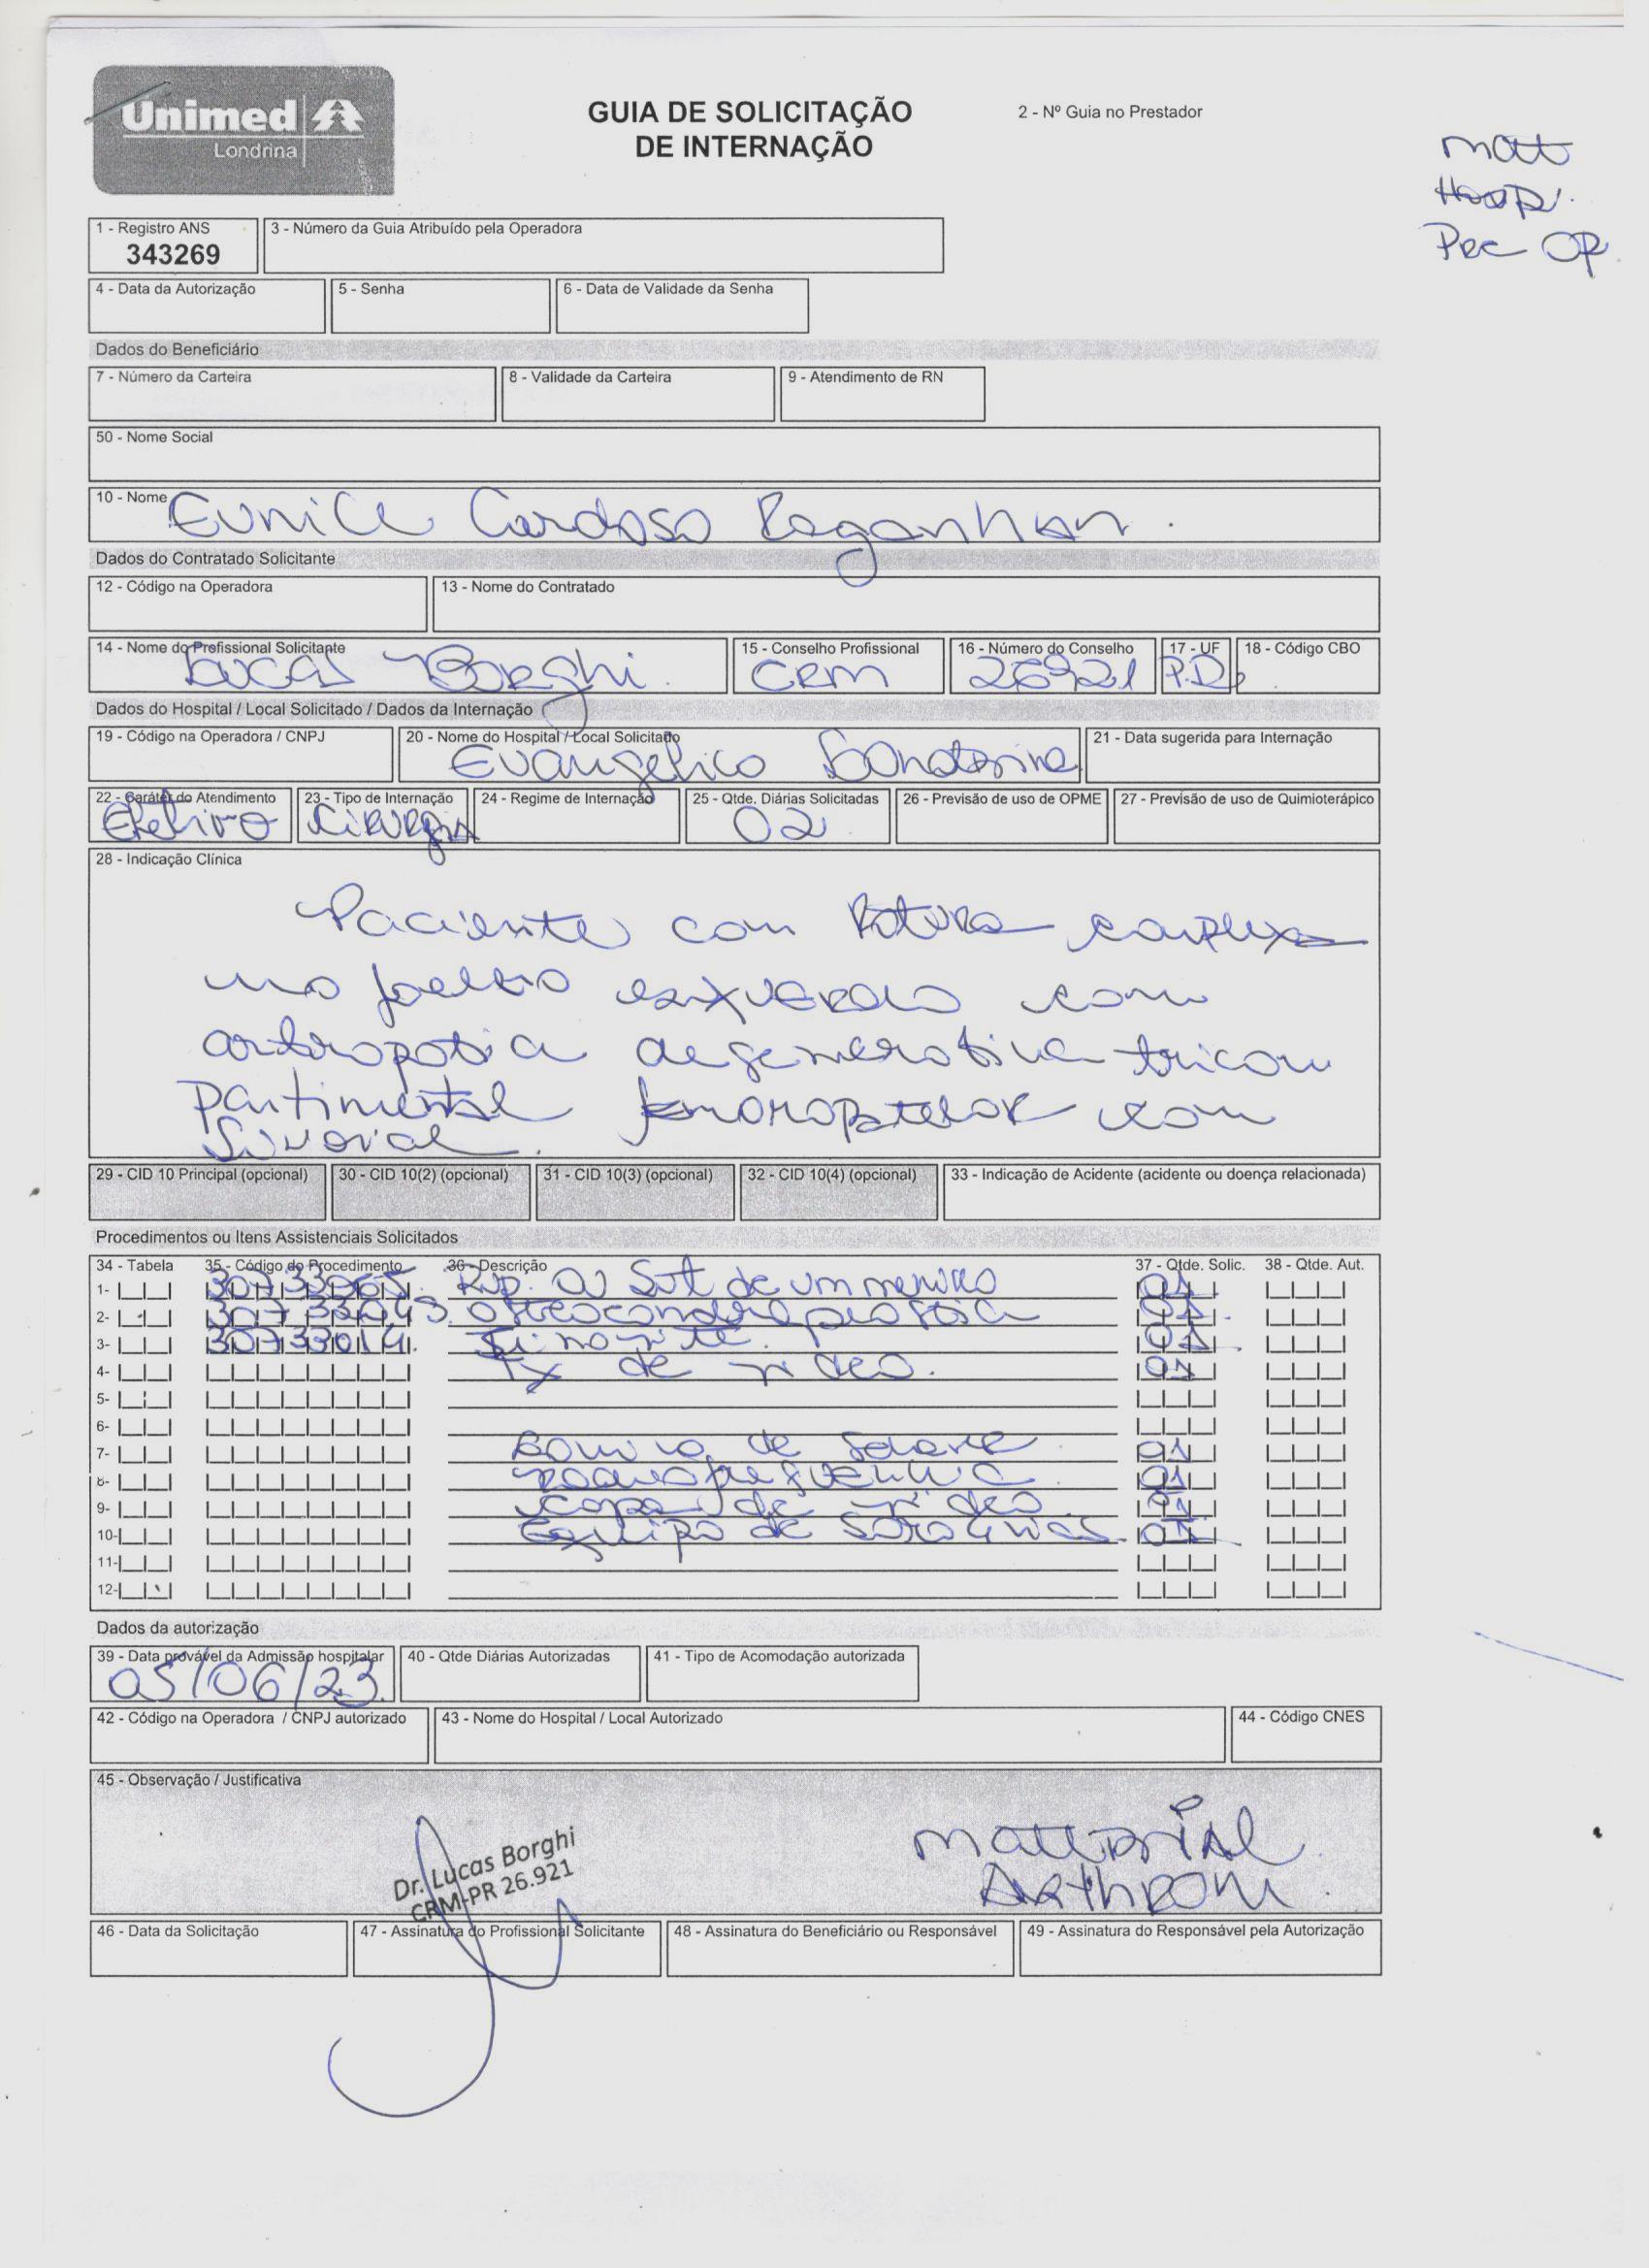 Unimed
Londrina
GUIA DE SOLICITAÇÃO
DE INTERNAÇÃO
2 - Nº Guia no Prestador
Matt
Hosp.
Pec OP.
1 - Registro ANS
343269
3 - Número da Guia Atribuído pela Operadora
4 - Data da Autorização
5 - Senha
6 - Data de Validade da Senha
Dados do Beneficiário
7 - Número da Carteira
8 - Validade da Carteira
9 - Atendimento de RN
50 - Nome Social
10 - Nome Eunice Cardoso Reganhan.
Dados do Contratado Solicitante
12 - Código na Operadora
13 - Nome do Contratado
14 - Nome do Profissional Solicitante
Lucas Borghi.
15 - Conselho Profissional
CRM
16 - Número do Conselho
26921
17 - UF
PR
18 - Código CBO
Dados do Hospital / Local Solicitado / Dados da Internação
19 - Código na Operadora / CNPJ
20 - Nome do Hospital / Local Solicitado
Evangelico Londrina
21 - Data sugerida para Internação
22 - Caráter do Atendimento
Eletivo
23 - Tipo de Internação
Cirurgia
24 - Regime de Internação
25 - Qtde. Diárias Solicitadas
02
26 - Previsão de uso de OPME
27 - Previsão de uso de Quimioterápico
28 - Indicação Clínica
Paciente com Rotura complexa
no joelho esquerdo com
artropatia degenerativa tricom
partimental femoropatelar com
sinovial.
29 - CID 10 Principal (opcional)
30 - CID 10(2) (opcional)
31 - CID 10(3) (opcional)
32 - CID 10(4) (opcional)
33 - Indicação de Acidente (acidente ou doença relacionada)
Procedimentos ou Itens Assistenciais Solicitados
34 - Tabela 35 - Código do Procedimento 36 - Descrição 37 - Qtde. Solic. 38 - Qtde. Aut.
1- 30733065. Rep. OU Sut de um menisco 01
2- 30733049 osteocondroplastia 01.
3- 30733014. Sinovite. 01
4- Tx de video. 01
5-
6-
7- Bomba de 01
8- radiofrequencia 01
9- capa de video 01
10- Equipo de soro 4 vias. 01
11-
12-
Dados da autorização
39 - Data provável da Admissão hospitalar
05/06/23.
40 - Qtde Diárias Autorizadas
41 - Tipo de Acomodação autorizada
42 - Código na Operadora / CNPJ autorizado
43 - Nome do Hospital / Local Autorizado
44 - Código CNES
45 - Observação / Justificativa
Dr. Lucas Borghi
CRM-PR 26.921
Material
Arthrom.
46 - Data da Solicitação
47 - Assinatura do Profissional Solicitante
48 - Assinatura do Beneficiário ou Responsável
49 - Assinatura do Responsável pela Autorização